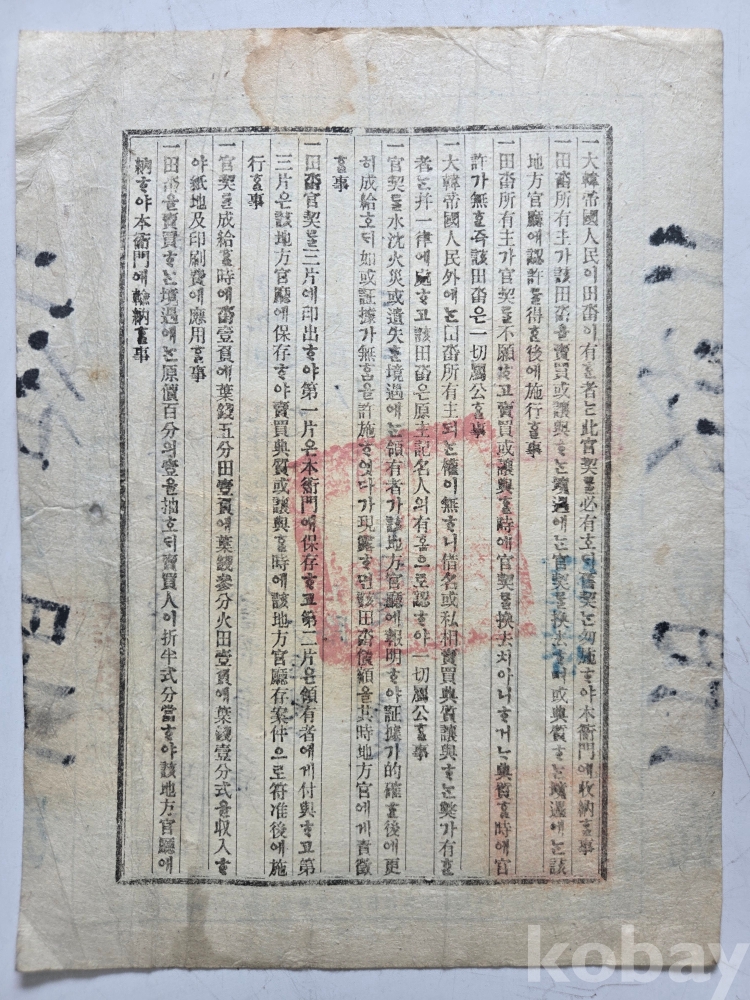 一大韓帝國人民이田畓이有ᄒᆞᆫ者ᄂᆞᆫ此官契를必有호ᄃᆡ舊契ᄂᆞᆫ勿施ᄒᆞ야本衙門에收納ᄒᆞᆯ事
一田畓所有主가該田畓을賣買或讓與ᄒᆞᄂᆞᆫ境遇에ᄂᆞᆫ官契를換去ᄒᆞ며或典質ᄒᆞᄂᆞᆫ境遇에ᄂᆞᆫ該
地方官廳에認許를得ᄒᆞᆫ後에施行ᄒᆞᆯ事
一田畓所有主가官契를不願ᄒᆞ고賣買或讓與ᄒᆞᆯ時에官契를換去치아니ᄒᆞ거ᄂᆞ典質ᄒᆞᆯ時에官
許가無ᄒᆞᆫ즉該田畓은一切屬公ᄒᆞᆯ事
一大韓帝國人民外에ᄂᆞᆫ田畓所有主되ᄂᆞᆫ權이無ᄒᆞ니借名或私相賣買典質讓與ᄒᆞᄂᆞᆫ獘가有ᄒᆞᆫ
者ᄂᆞᆫ幷一律에處ᄒᆞ고該田畓은原主記名人의有홈으로認ᄒᆞ야一切屬公ᄒᆞᆯ事
一官契를水沈火災或遺失ᄒᆞᆫ境遇에ᄂᆞᆫ領有者가該地方官廳에報明ᄒᆞ야証據가的確ᄒᆞᆫ後에更
히成給호ᄃᆡ如或証據가無홈을許施ᄒᆞ엿다가現露ᄒᆞ면該田畓價額을其時地方官에게責徵
ᄒᆞᆯ事
一田畓官契를三片에印出ᄒᆞ야第一片은本衙門에保存ᄒᆞ고第二片은領有者에게付與ᄒᆞ고第
三片은該地方官廳에保存ᄒᆞ야賣買典質或讓與ᄒᆞᆯ時에該地方官廳存案件으로符准後에施
行ᄒᆞᆯ事
一官契를成給ᄒᆞᆯ時에畓壹負에葉錢五分田壹負에葉錢叄分火田壹負에葉錢壹分式을収入ᄒᆞ
야紙地及印刷費에應用ᄒᆞᆯ事
一田畓을賣買ᄒᆞᄂᆞᆫ境遇에ᄂᆞᆫ原價百分의壹을抽호ᄃᆡ賣買人이折半式分當ᄒᆞ야該地方官廳에
納ᄒᆞ야本衙門에輸納ᄒᆞᆯ事
kobay